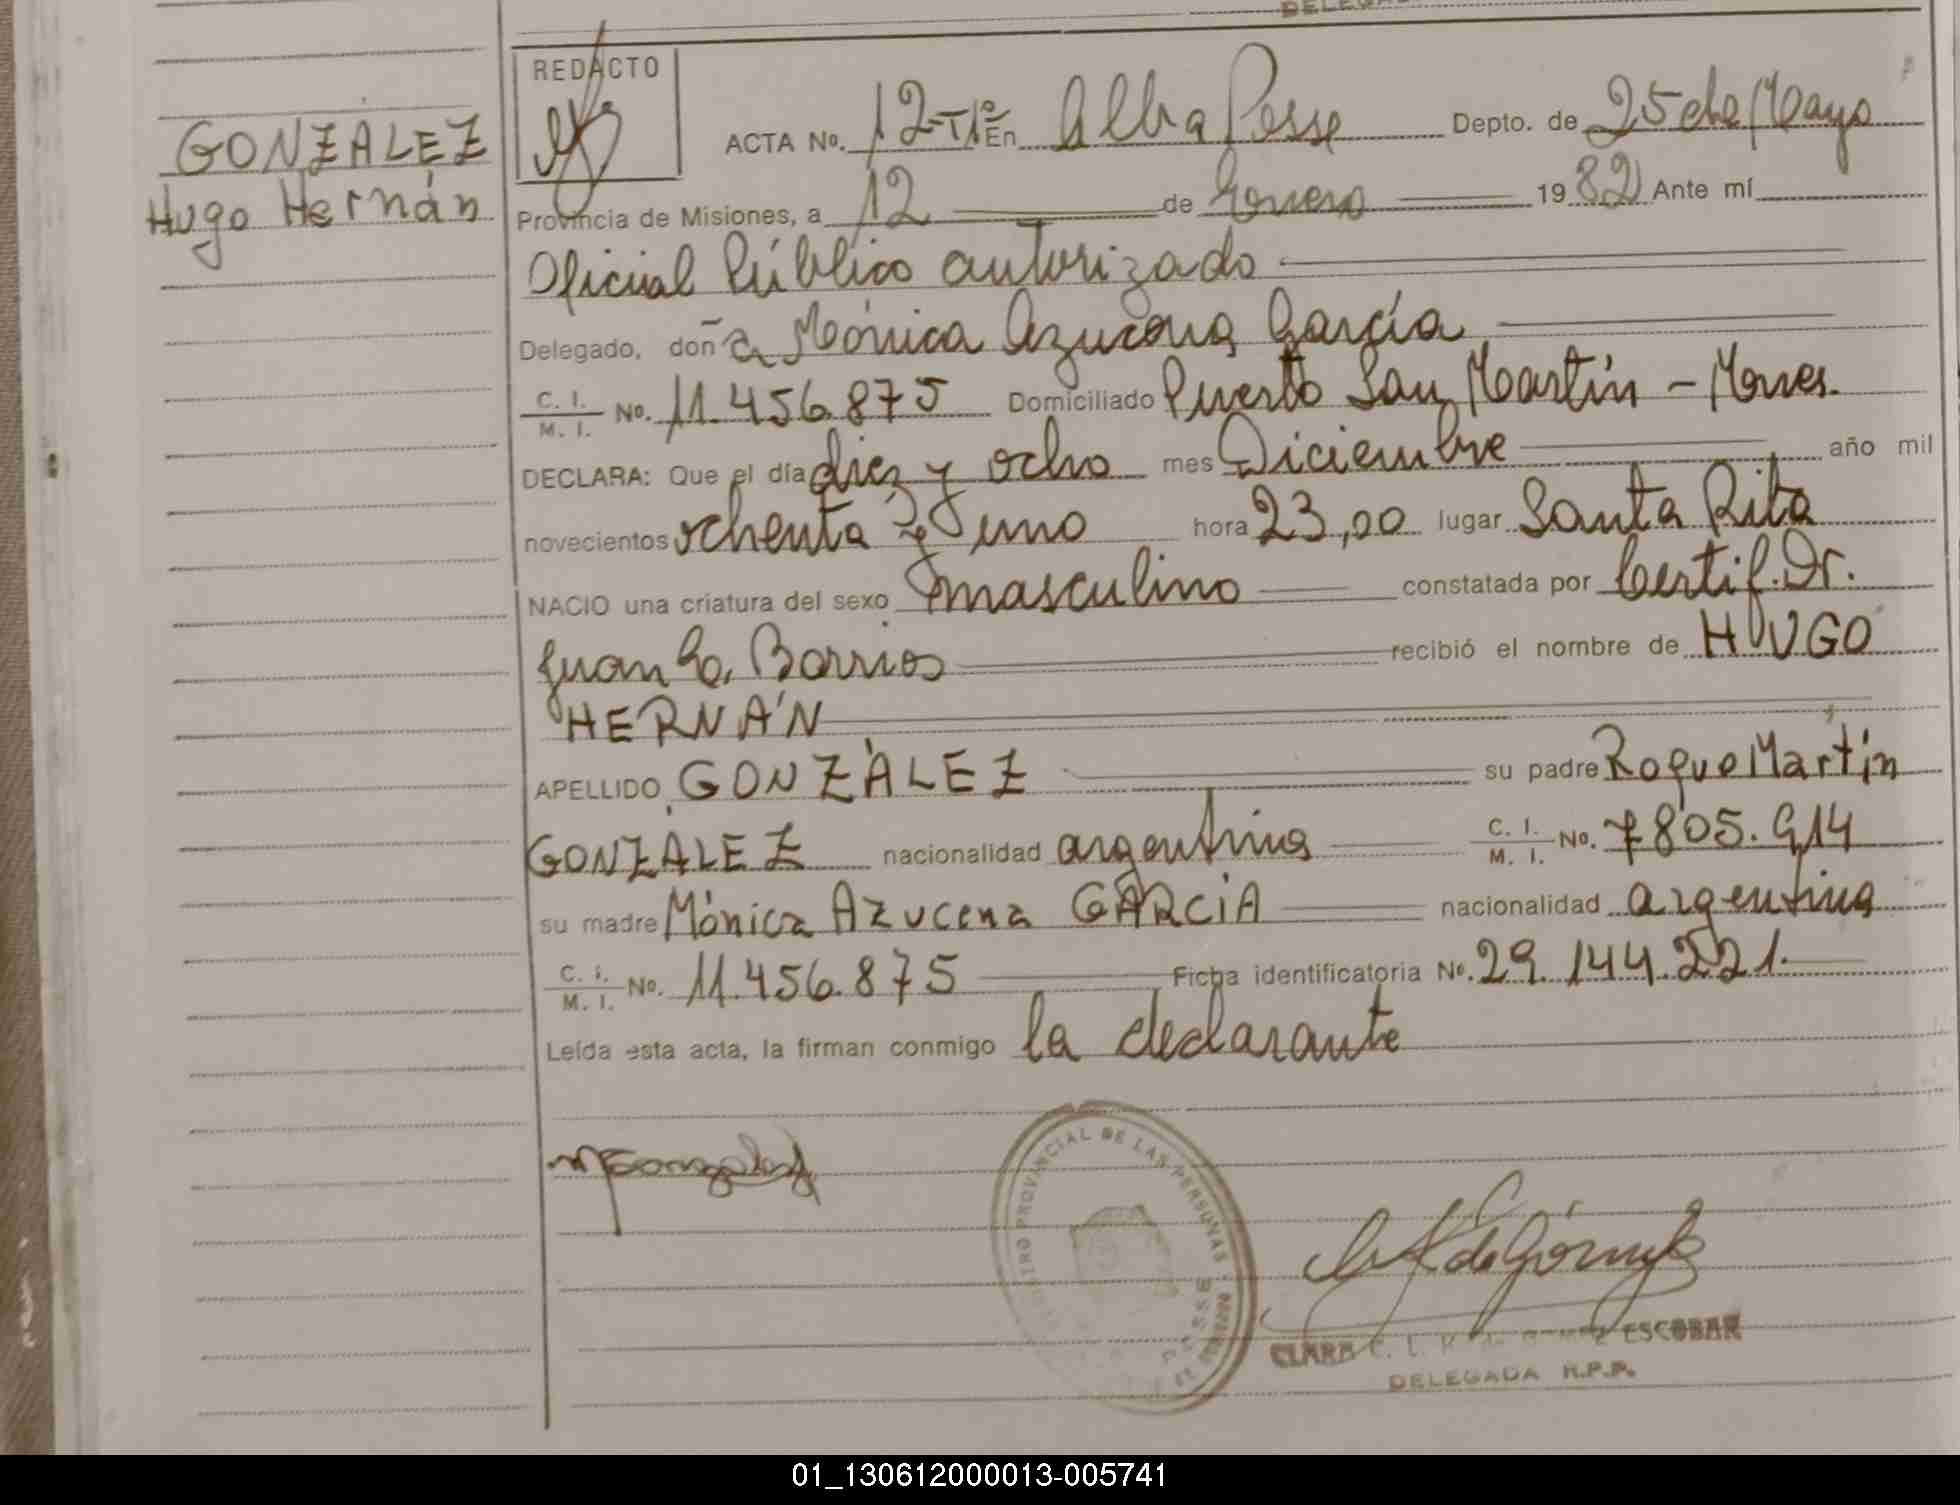 GONZÁLEZ
Hugo Hernán
REDACTO
ACTA No. 12-T1º En Alba Posse Depto. de 25 de Mayo
Provincia de Misiones, a 12 de Enero 1982 Ante mí
Oficial Público autorizado
Delegado, doña Mónica Azucena García
C. I. / M. I. No. 11.456.875 Domiciliado Puerto San Martín - Mnes.
DECLARA: Que el día diez y ocho mes Diciembre año mil
novecientos ochenta y uno hora 23,00 lugar Santa Rita
NACIO una criatura del sexo masculino constatada por Certif. Dr.
Juan C. Barrios recibió el nombre de HUGO
HERNÁN
APELLIDO GONZÁLEZ su padre Roque Martín
GONZÁLEZ nacionalidad argentina C. I. / M. I. No. 7805.914
su madre Mónica Azucena GARCÍA nacionalidad argentina
C. I. / M. I. No. 11.456.875 Ficha identificatoria No. 29.144.221.
Leída esta acta, la firman conmigo la declarante
REGISTRO PROVINCIAL DE LAS PERSONAS
POSSE
CLARA ESCOBAR
DELEGADA R.P.P.
01_130612000013-005741